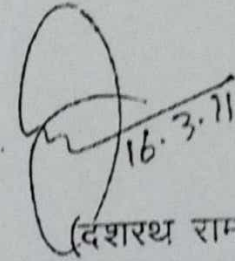 16.3.11
(दशरथ राम